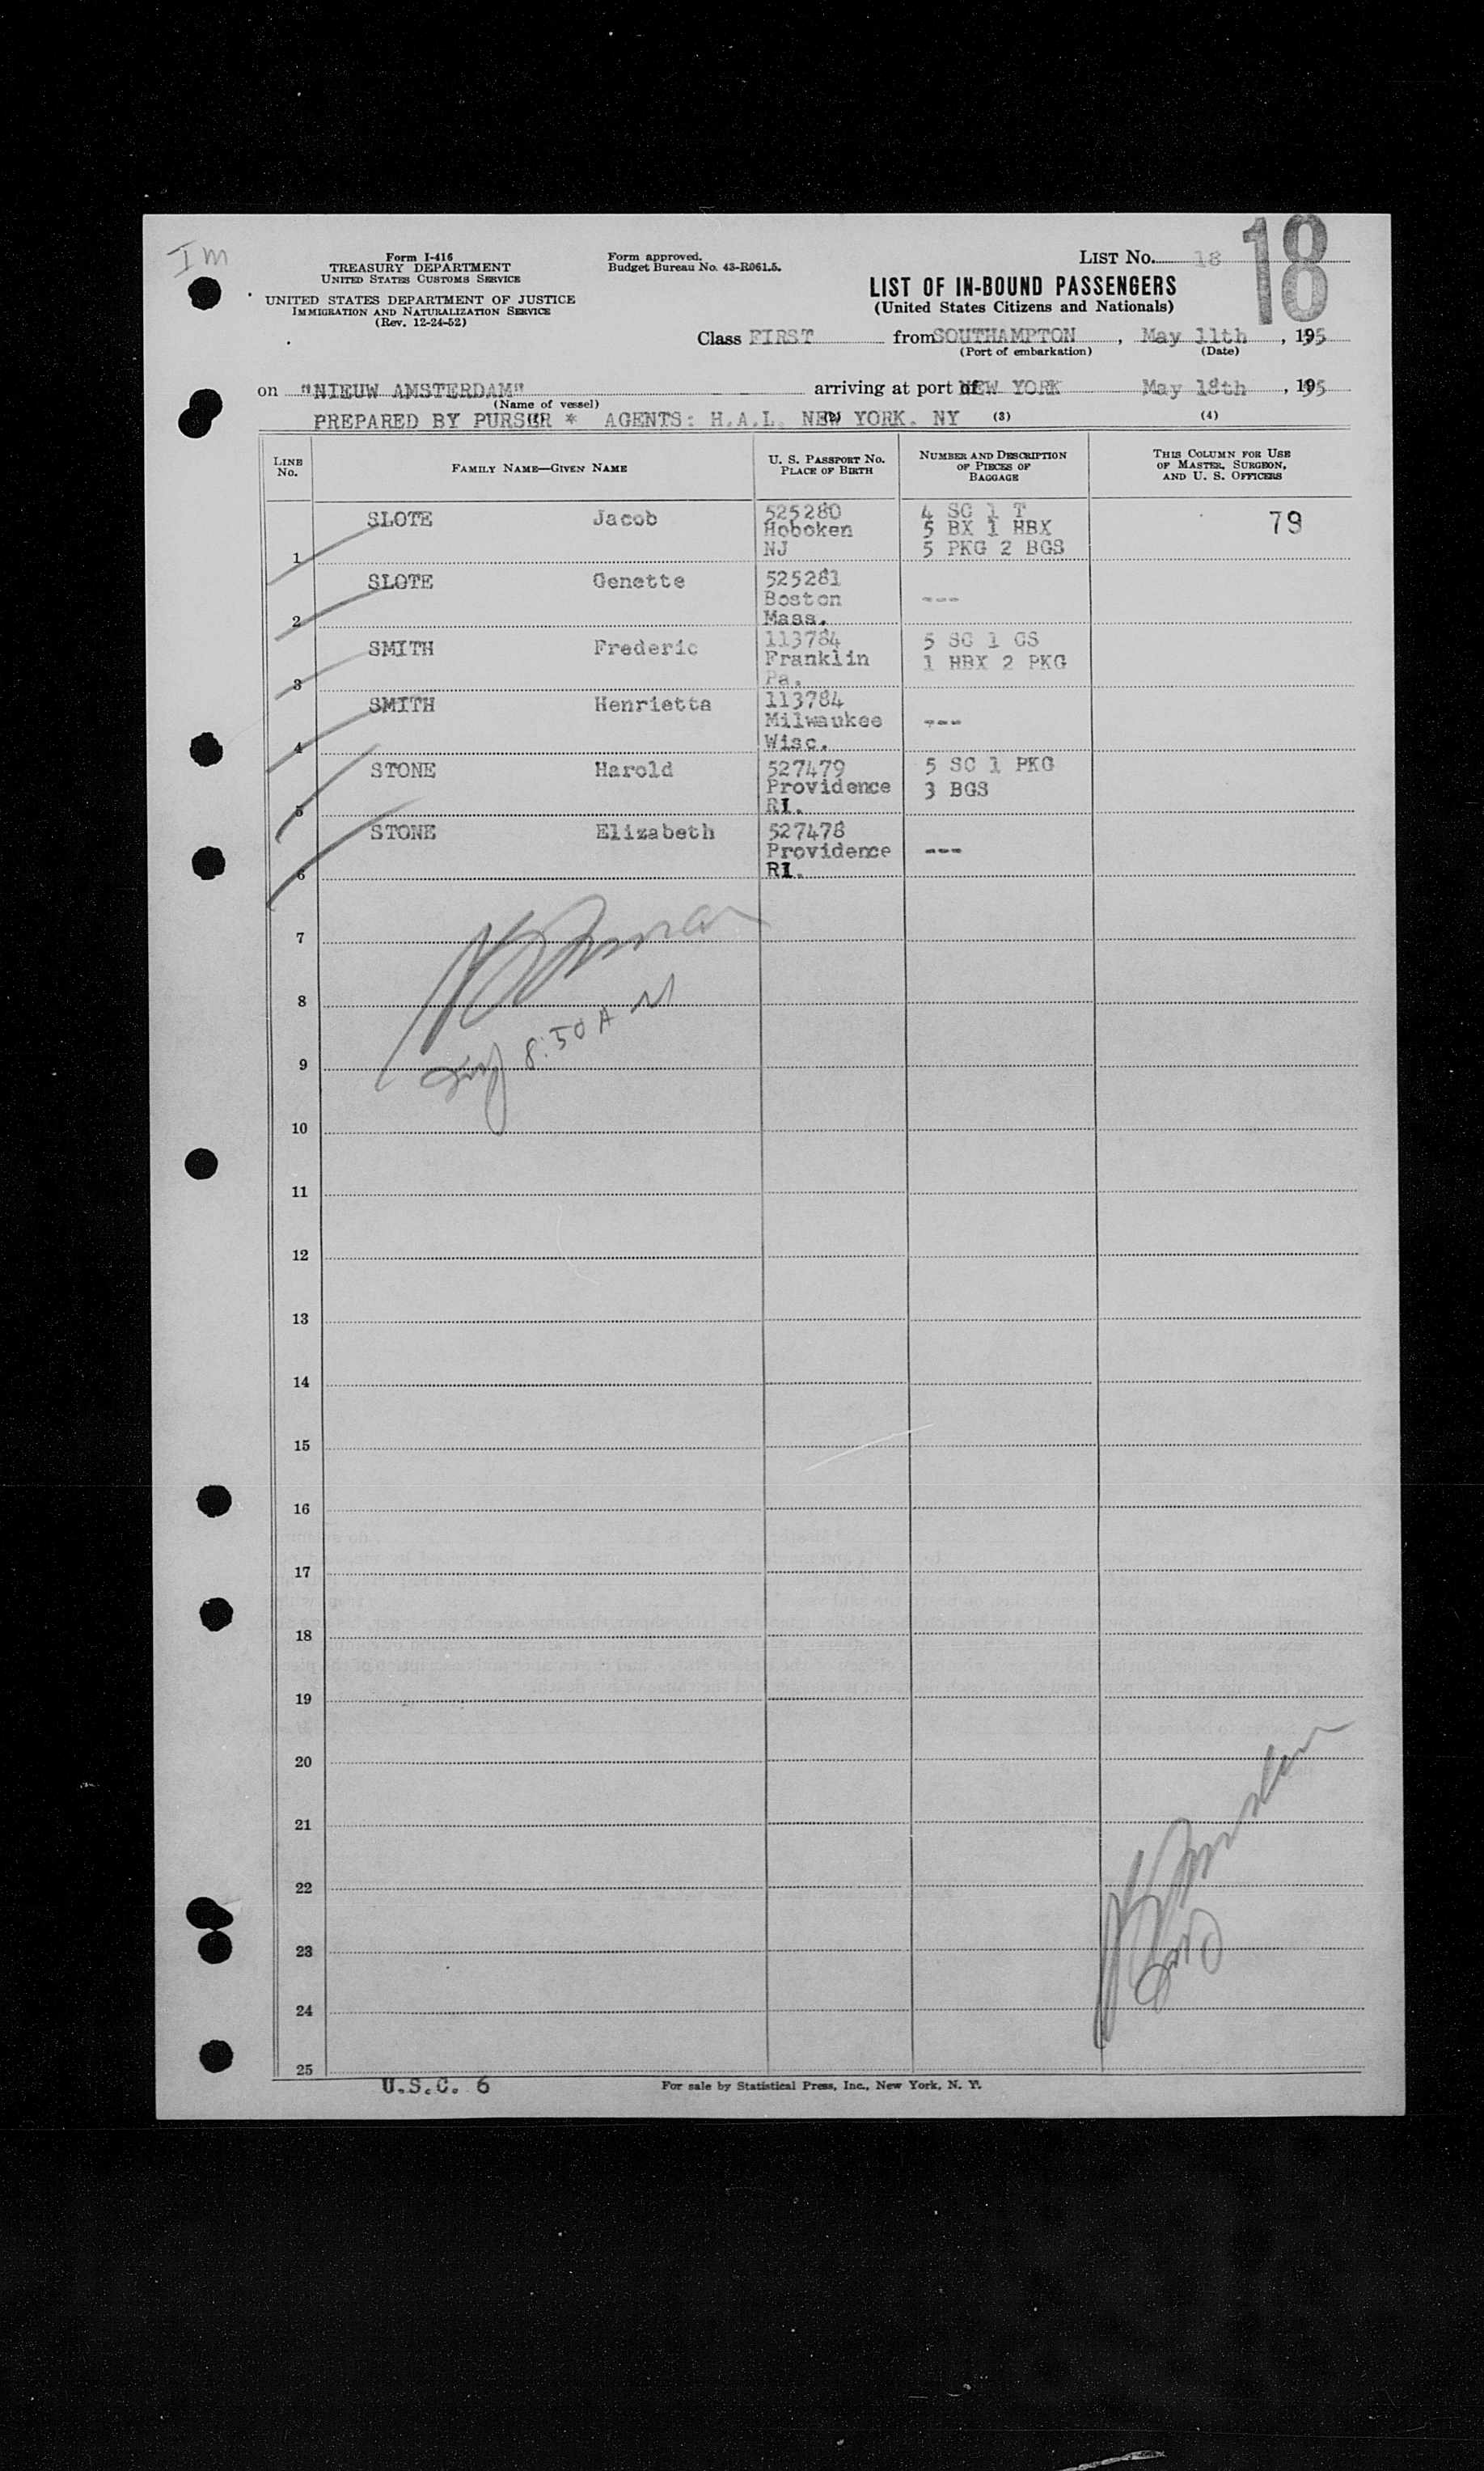 Im
Form I-416
TREASURY DEPARTMENT
UNITED STATES CUSTOMS SERVICE
UNITED STATES DEPARTMENT OF JUSTICE
IMMIGRATION AND NATURALIZATION SERVICE
(Rev. 12-24-52)
Form approved.
Budget Bureau No. 43-R061.5.
LIST No. 18
18
LIST OF IN-BOUND PASSENGERS
(United States Citizens and Nationals)
Class FIRST from SOUTHAMPTON, May 11th, 195
(Port of embarkation) (Date)
on "NIEUW AMSTERDAM" arriving at port of NEW YORK May 18th, 195
(Name of vessel)
PREPARED BY PURSER * AGENTS: H.A.L. NEW YORK. NY (3) (4)
LINE No. FAMILY NAME—GIVEN NAME U. S. PASSPORT No. PLACE OF BIRTH NUMBER AND DESCRIPTION OF PIECES OF BAGGAGE THIS COLUMN FOR USE OF MASTER, SURGEON, AND U. S. OFFICERS
1 SLOTE Jacob 525280 4 SC 1 T 79
Hoboken 5 BX 1 HBX
NJ 5 PKG 2 BGS
2 SLOTE Genette 525281
Boston ---
Mass.
3 SMITH Frederic 113784 5 SC 1 GS
Franklin 1 HBX 2 PKG
Pa.
4 SMITH Henrietta 113784
Milwaukee ---
Wisc.
5 STONE Harold 527479 5 SC 1 PKG
Providence 3 BGS
RI.
6 STONE Elizabeth 527478
Providence ---
RI.
7
8
8:50 A M
9
10
11
12
13
14
15
16
17
18
19
20
21
22
23
24
25
U.S.C. 6
For sale by Statistical Press, Inc., New York, N. Y.